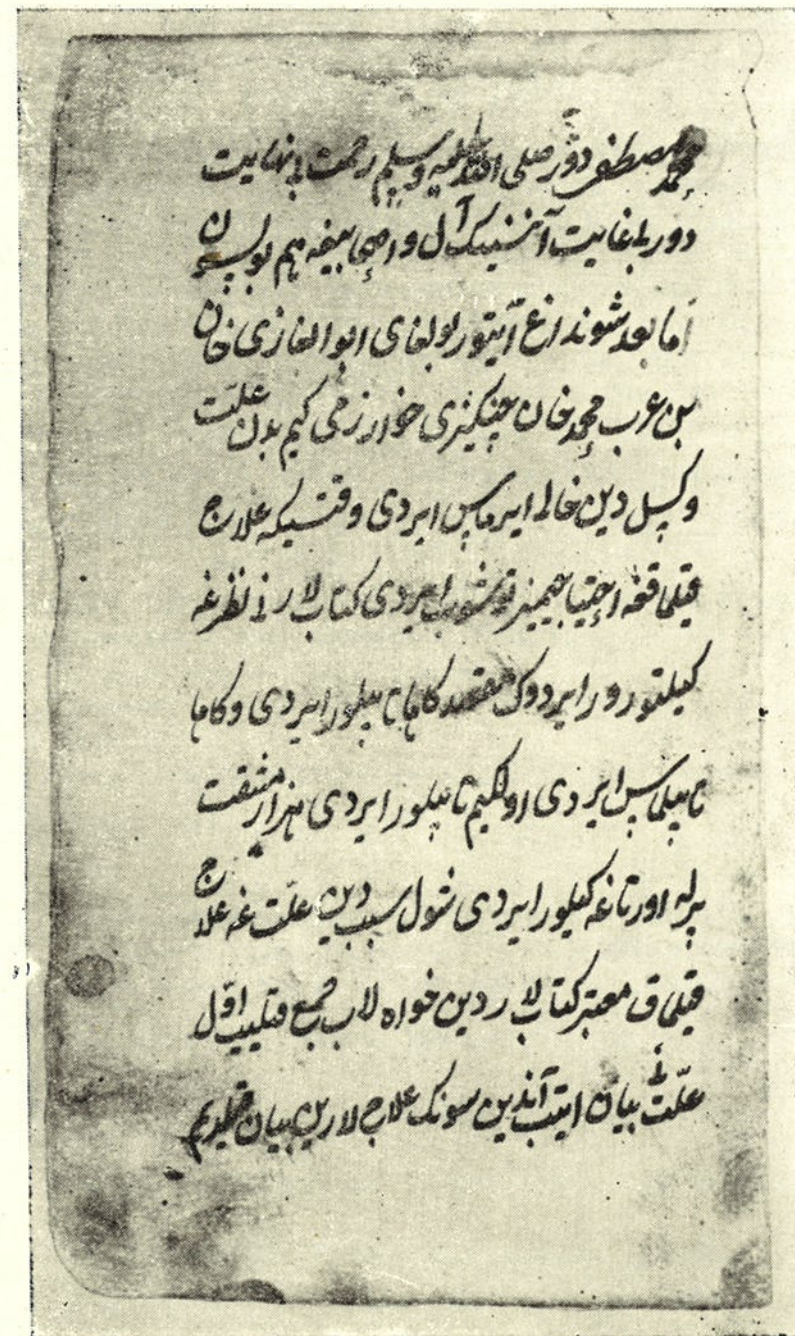 محمد مصطفی دور صلی الله علیه وسلم رحمت بی نهایت
دور بلغایت آننینک آل و اصحابیغه هم بولسون
اما بعد شونداغ آیتور ابوالغازی خان
بن عرب محمد خان چنکیزی خوارزمی کیم بدن علت
وکسل دین خالی ایرماس ایردی وقتیکه علاج
قیلماقغه احتیاجیمیز توشوب ایردی کتاب لارنی نظرغه
کیلتورور ایردوک مقصد کاها تاپیلور ایردی وکاها
تاپیلماس ایردی اولکیم تاپیلور ایردی هزار مشقت
برله اورتاغه کیلور ایردی شول سبب دین علت غه علاج
قیلماق معتبر کتاب لاردین خواه لاب جمع قیلیب اول
علت نی بیان ایتیب آندین سونک علاج لارین بیان قیلدیم